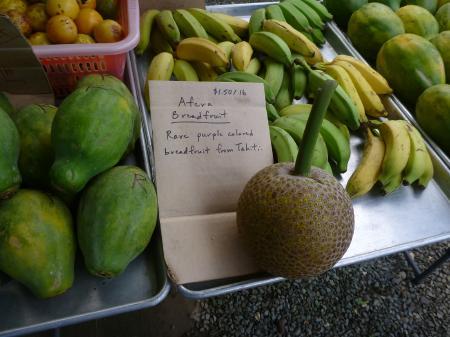 $1.50/lb
Afara
Breadfruit
Rare purple colored
breadfruit from Tahiti.